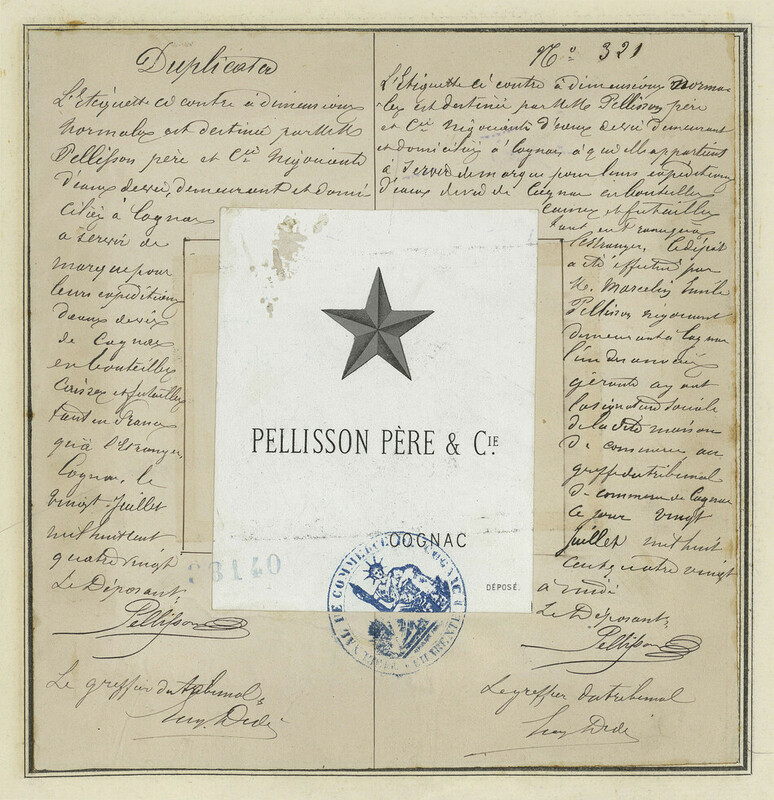 Duplicata
L'Etiquette ci contre à dimensions
normales est destinée par MM
Pellisson père et Cie Négociants
d'eaux de vie, demeurant et domi
ciliés à Cognac
à servir de
marque pour
leurs expéditions
d'eaux de vie
de Cognac
en bouteilles
Caisses et futailles
tant en France
qu'à l'Etranger.
Cognac, le
vingt Juillet
mil huit cent
quatre vingt
Le Déposant,
Pellisson
Le greffier du tribunal
N.o 321
L'Etiquette ci contre à dimensions norma
les est destinée par MM Pellisson père
et Cie Négociants d'eaux de vie demeurant
et domiciliés à Cognac à qui elle appartient
à servir de marque pour leurs expéditions
d'eaux de vie de Cognac en bouteilles
caisses et futailles
tant en France qu'à
l'étranger, le dépôt
a été effectué par
M. Marcelin Emile
Pellisson négociant
demeurant à Cognac
l'un des associés
gérants ayant
la signature sociale
de la dite maison
de commerce au
greffe du tribunal
de commerce de Cognac
ce jour vingt
juillet mil huit
cent quatre vingt
à midi
Le Déposant,
Pellisson
Le greffier du tribunal
PELLISSON PÈRE & CIE.
COGNAC
DÉPOSÉ.
38140
COMMERCE COGNAC CHARENTE